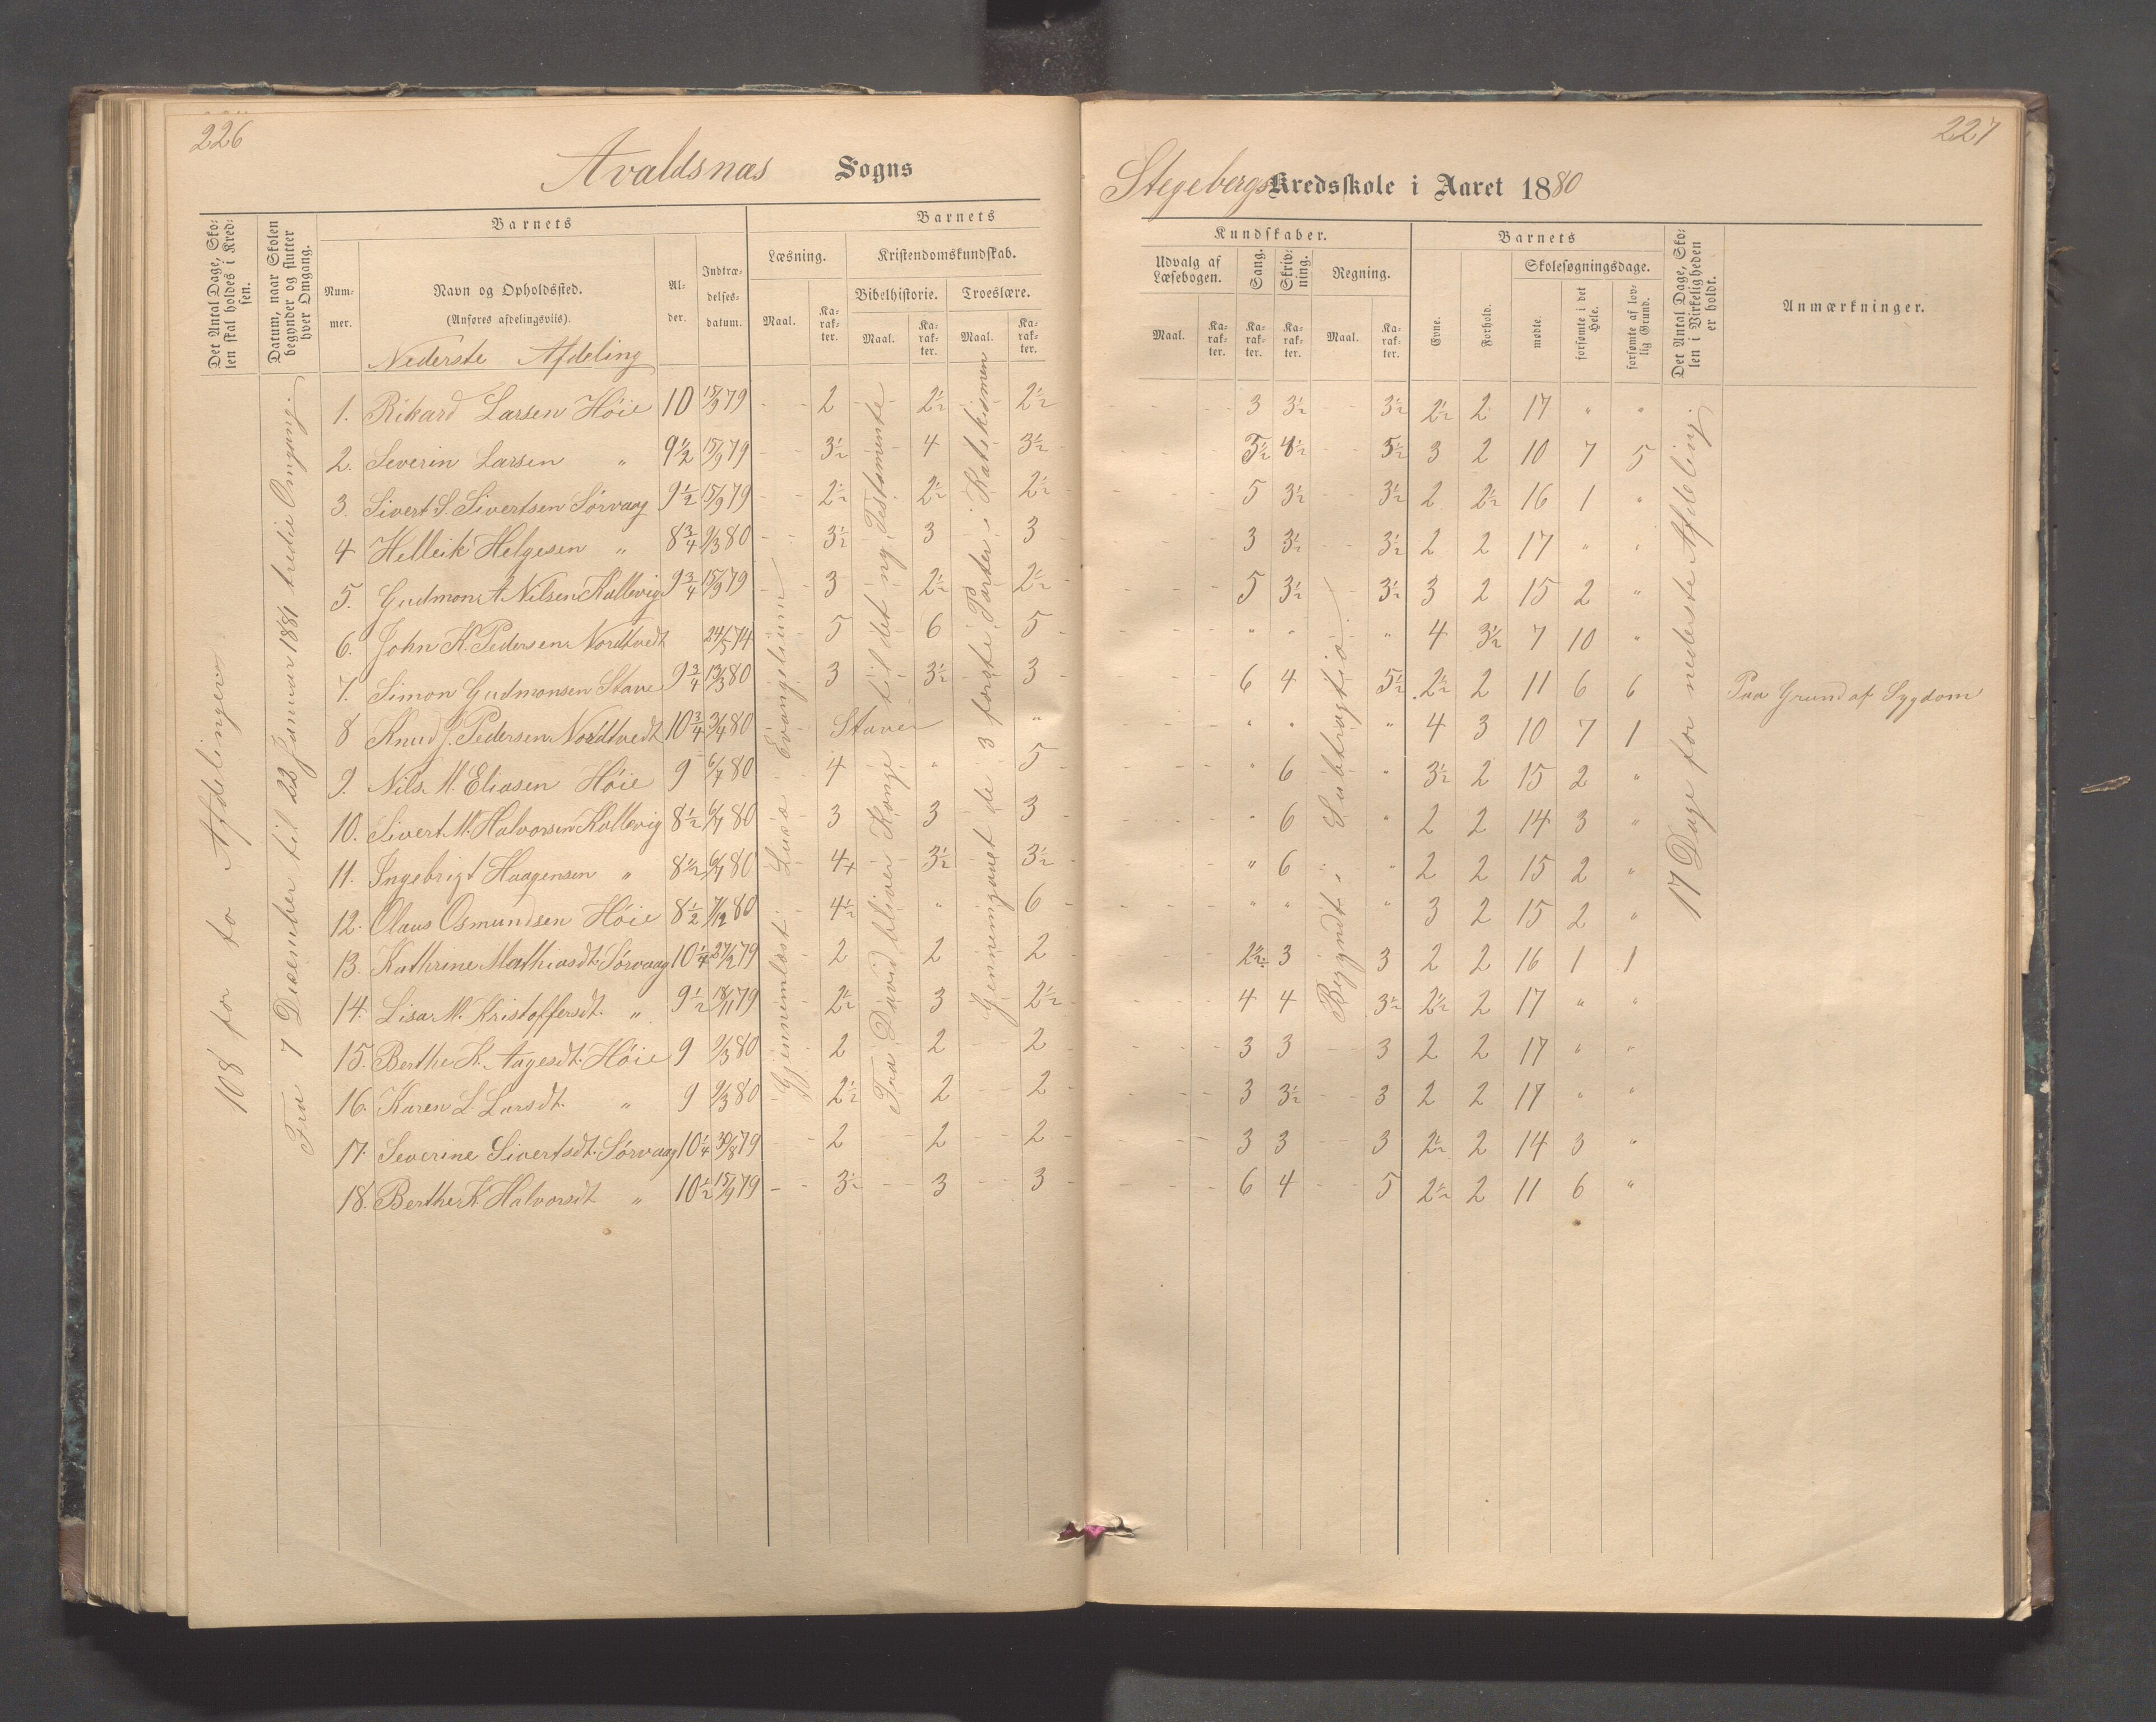 226
Avaldsnæs Sogns
Det Antal Dage, Skolen skal holdes i Kredsen.
Datum, naar Skolen begynder og slutter hver Omgang.
Barnets
Nummer.
Navn og Opholdssted.
(Anføres afdelingsviis).
Alder.
Indtrædelsesdatum.
Barnets
Læsning.
Kristendomskundskab.
Bibelhistorie.
Troeslære.
Maal.
Karakter.
Maal.
Karakter.
Maal.
Karakter.
Nederste Afdeling
108 for to Afdelinger.
Fra 7 December til 22 Januar 1881 tredie Omgang.
Gjennemlæst Lucas Evangelium
Fra David bliver Konge til det ny Testamente
Gennemgaaet de 3 første Parter i Katekismen
1. Rikard Larsen Höie 10 15/9 79 - - 2 - - 2½ - - 2½
2. Severin Larsen " 9½ 15/9 79 - - 3½ - - 4 - - 3½
3. Sivert S. Sivertsen Sörvaag 9½ 15/9 79 - - 2½ - - 2½ - - 2½
4 Helleik Helgesen " 8¾ 9/3 80 - - 3½ - - 3 - - 3
5. Gudmon A Nilsen Kallevig 9¾ 15/9 79 - - 3 - - 2½ - - 2½
6. John K. Pedersen Nordtvedt 24/5 74 5 6 5
7. Simon Gudmonsen Stave 9¾ 13/3 80 3 3½ 3
8 Knud J. Pedersen Nordtvedt 10¾ 3/4 80 Staver "
9. Nils M. Eliasen Höie 9 6/7 80 4 " 5
10. Sivert M. Halvorsen Kallevig 8½ 6/7 80 3 3 3
11. Ingebrigt Haagensen " 8½ 6/7 80 4+ 3½ 3½
12. Olaus Osmundsen Höie 8½ 7/12 80 4½ " 6
13. Kathrine Mathiasdt. Sörvaag 10¼ 27/2 79 2 2 2
14. Lisa M. Kristoffersdt. " 9½ 18/11 79 2½ 3 2½
15. Berthe K. Aagesdt. Höie 9 9/3 80 2 2 2
16. Karen L. Larsdt. " 9 9/3 80 2½ 2 2
17. Severine Sivertsdt. Sörvaag 10¼ 30/8 79 2 2 2
18. Berthe K Halvorsdt. " 10½ 15/9 79 3½ 3 3
227
Stegebergs Kredsskole i Aaret 1880
Kundskaber.
Udvalg af Læsebogen.
Sang.
Skrivning.
Regning.
Maal.
Karakter.
Karakter.
Karakter.
Maal.
Karakter.
Barnets
Evne.
Forhold.
Skolesøgningsdage.
mødte.
forsømte i det Hele.
forsømte af lovlig Grund.
Det Antal Dage, Skolen i Virkeligheden er holdt.
Anmærkninger.
Begyndt i Subtraktion.
17 Dage for nederste Afdeling.
3 3½ 3½ 2½ 2 17 " "
5½ 4½ 5½ 3 2 10 7 5
5 3½ 3½ 2 2½ 16 1 "
3 3½ 3½ 2 2 17 " "
5 3½ 3½ 3 2 15 2 "
" " " 4 3½ 7 10 "
6 4 5½ 2½ 2 11 6 6 Paa Grund af Sygdom
" " " 4 3 10 7 1
" 6 " 3½ 2 15 2 "
" 6 " 2 2 14 3 "
" 6 " 2 2 15 2 "
" " " 3 2 15 2 "
2½ 3 3 2 2 16 1 1
4 4 3½ 2½ 2 17 " "
3 3 3 2 2 17 " "
3 3½ 3 2 2 17 " "
3 3 3 2½ 2 14 3 "
6 4 5 2½ 2 11 6 "